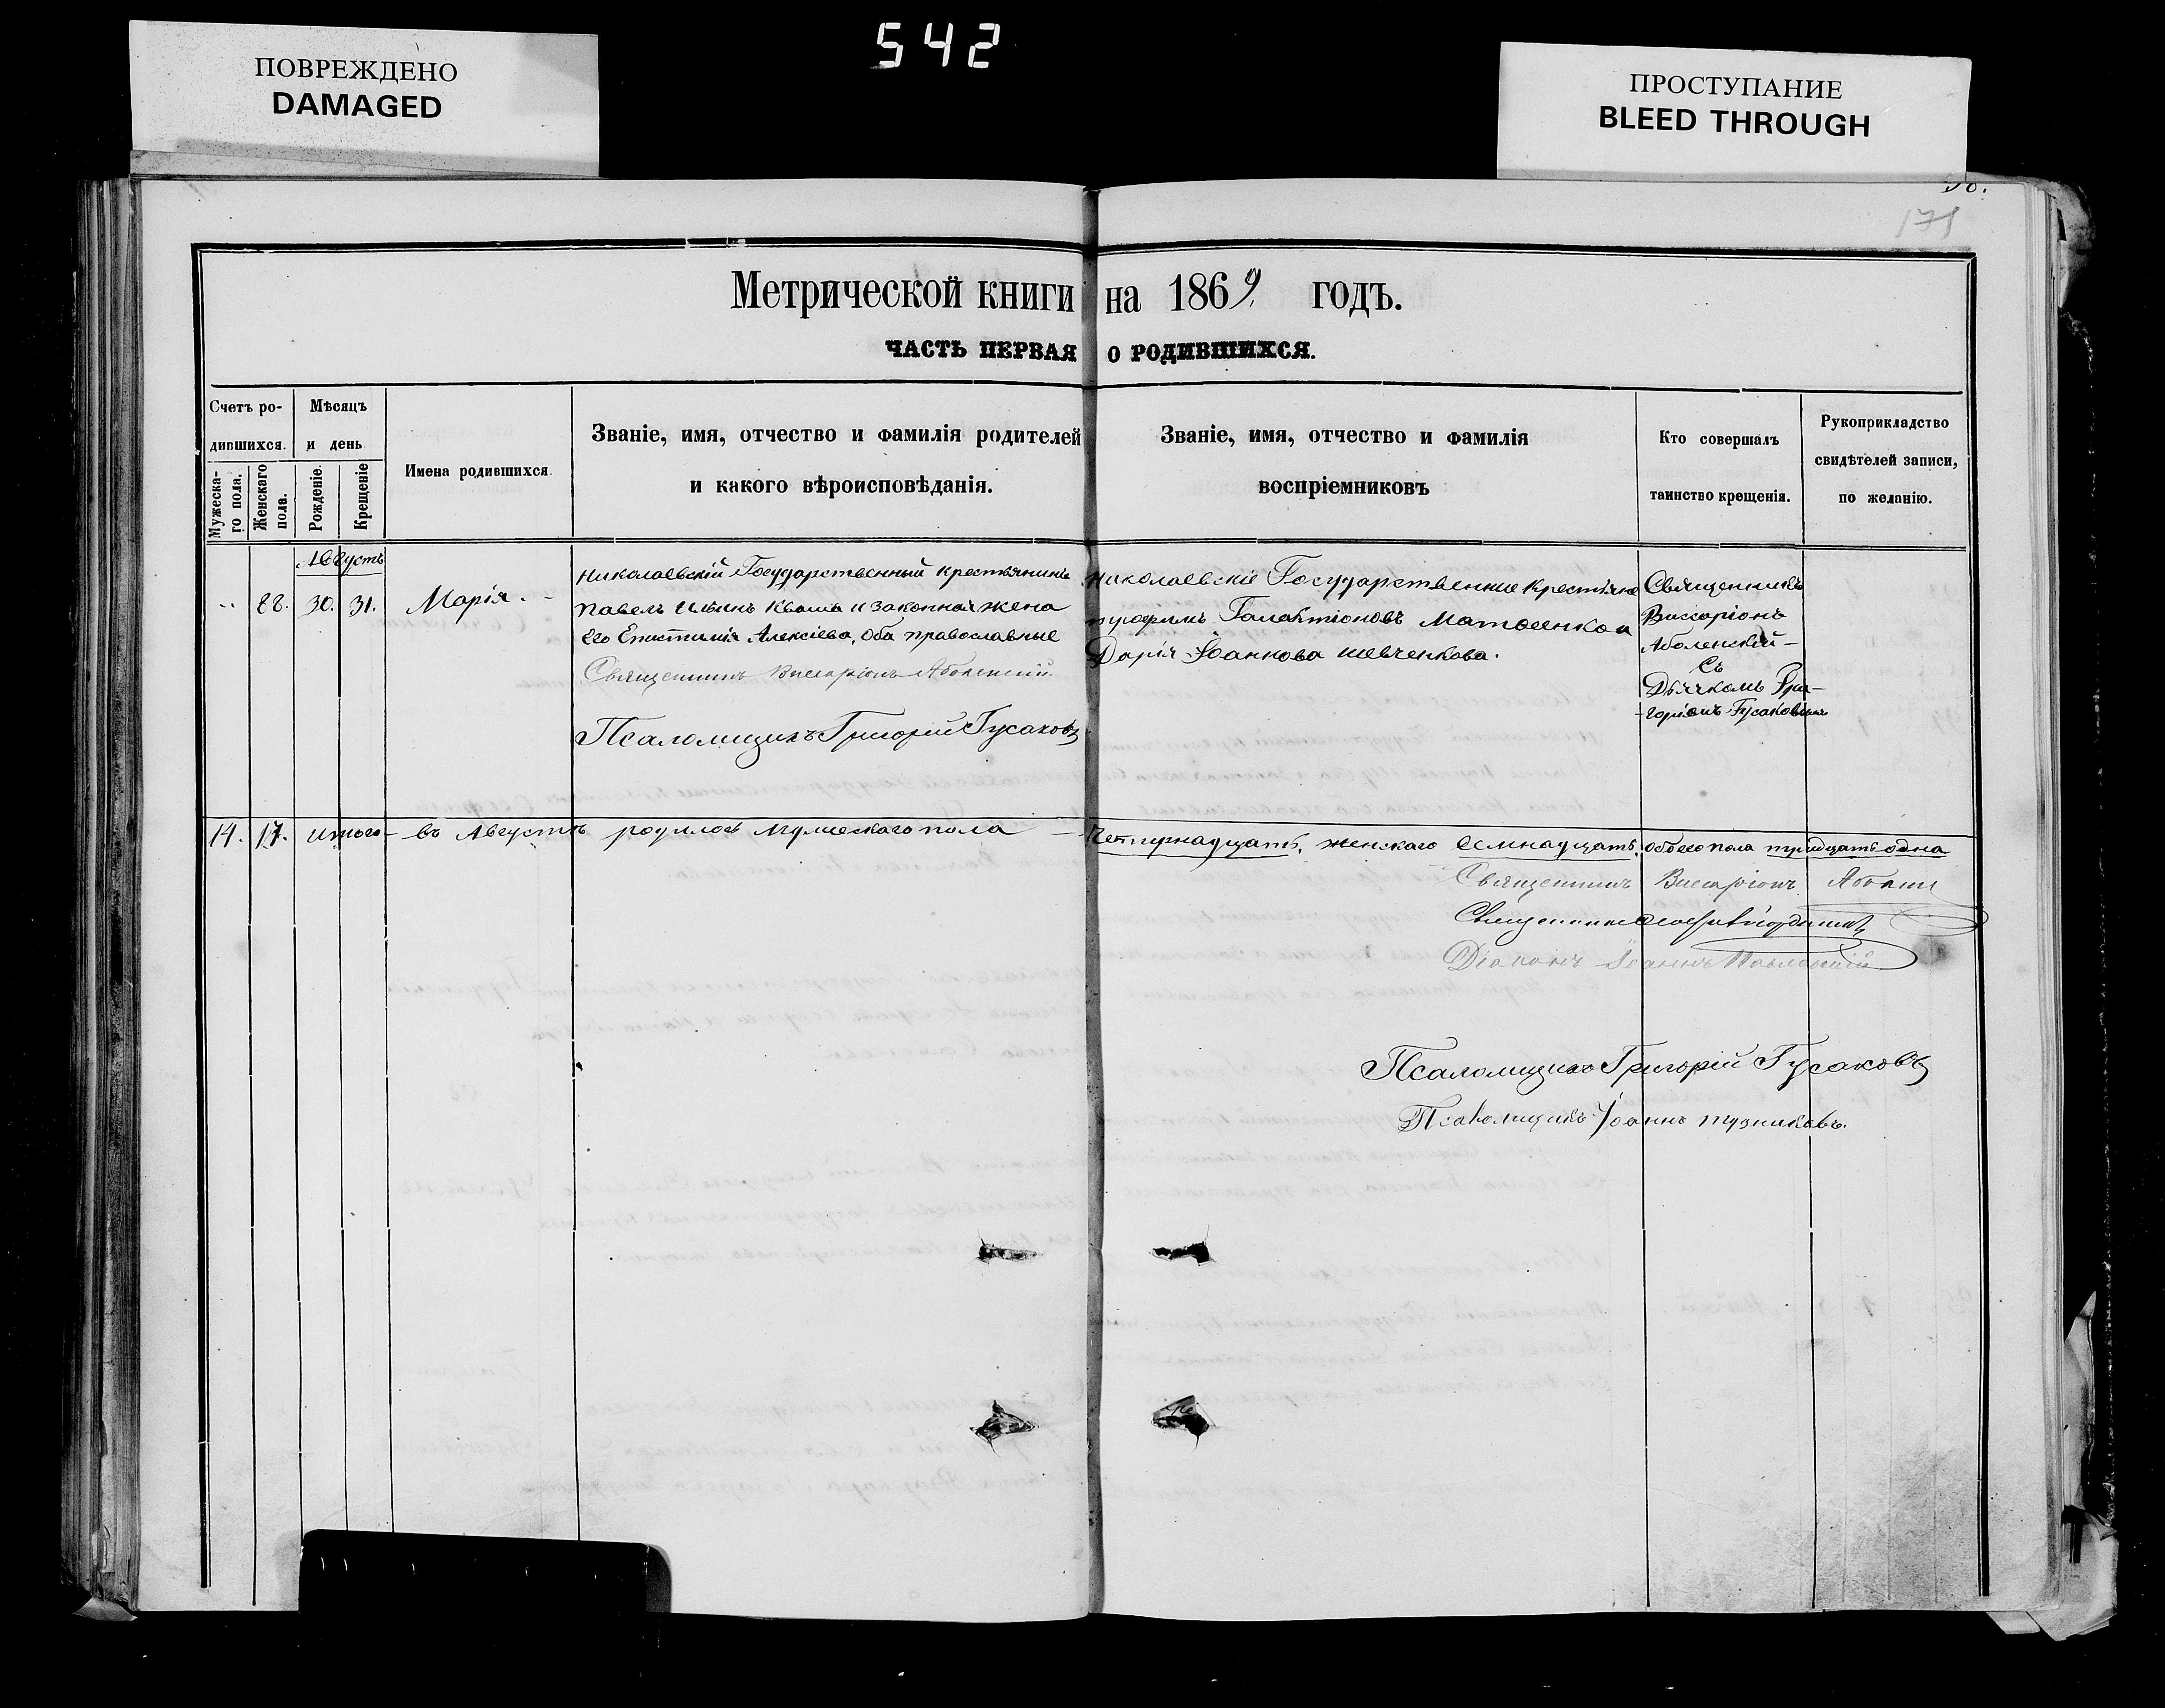 542
ПОВРЕЖДЕНО
DAMAGED
ПРОСТУПАНИЕ
BLEED THROUGH
171
Метрической книги на 1869 годъ.
ЧАСТЬ ПЕРВАЯ О РОДИВШИХСЯ.
Счетъ родившихся.
Мужескаго пола.
Женскаго пола.
Мѣсяцъ и день
Рожденіе.
Крещеніе
Имена родившихся
Званіе, имя, отчество и фамилія родителей
и какого вѣроисповѣданія.
Званіе, имя, отчество и фамилія
воспріемниковъ
Кто совершалъ
таинство крещенія.
Рукоприкладство
свидѣтелей записи,
по желанію.
Августъ
88. 30. 31. Марія.
Николаевскій Государственный крестьянинъ
Павелъ Ильинъ Кваша и законная жена
его Епистимія Алексіева, оба православные
Священникъ Висаріонъ Аболенскій
Псаломщикъ Григорій Гусаковъ
Николаевскіе Государственные крестьяне
Трофимъ Галактіоновъ Матвеенко и
Дарія Іоаннова Шевченкова.
Священникъ
Виссаріонъ
Аболенскій
Съ
Дьячкомъ Гри-
горіемъ Гусаковымъ
14. 17. Итого въ Августѣ родилось Мужескаго пола Четырнадцать, женскаго Семнадцать, обоего пола тридцать одна
Священникъ Висаріонъ
Священникъ
Діаконъ Іоаннъ Павловскій
Псаломщикъ Григорій Гусаковъ
Псаломщикъ Іоаннъ Тузниковъ.